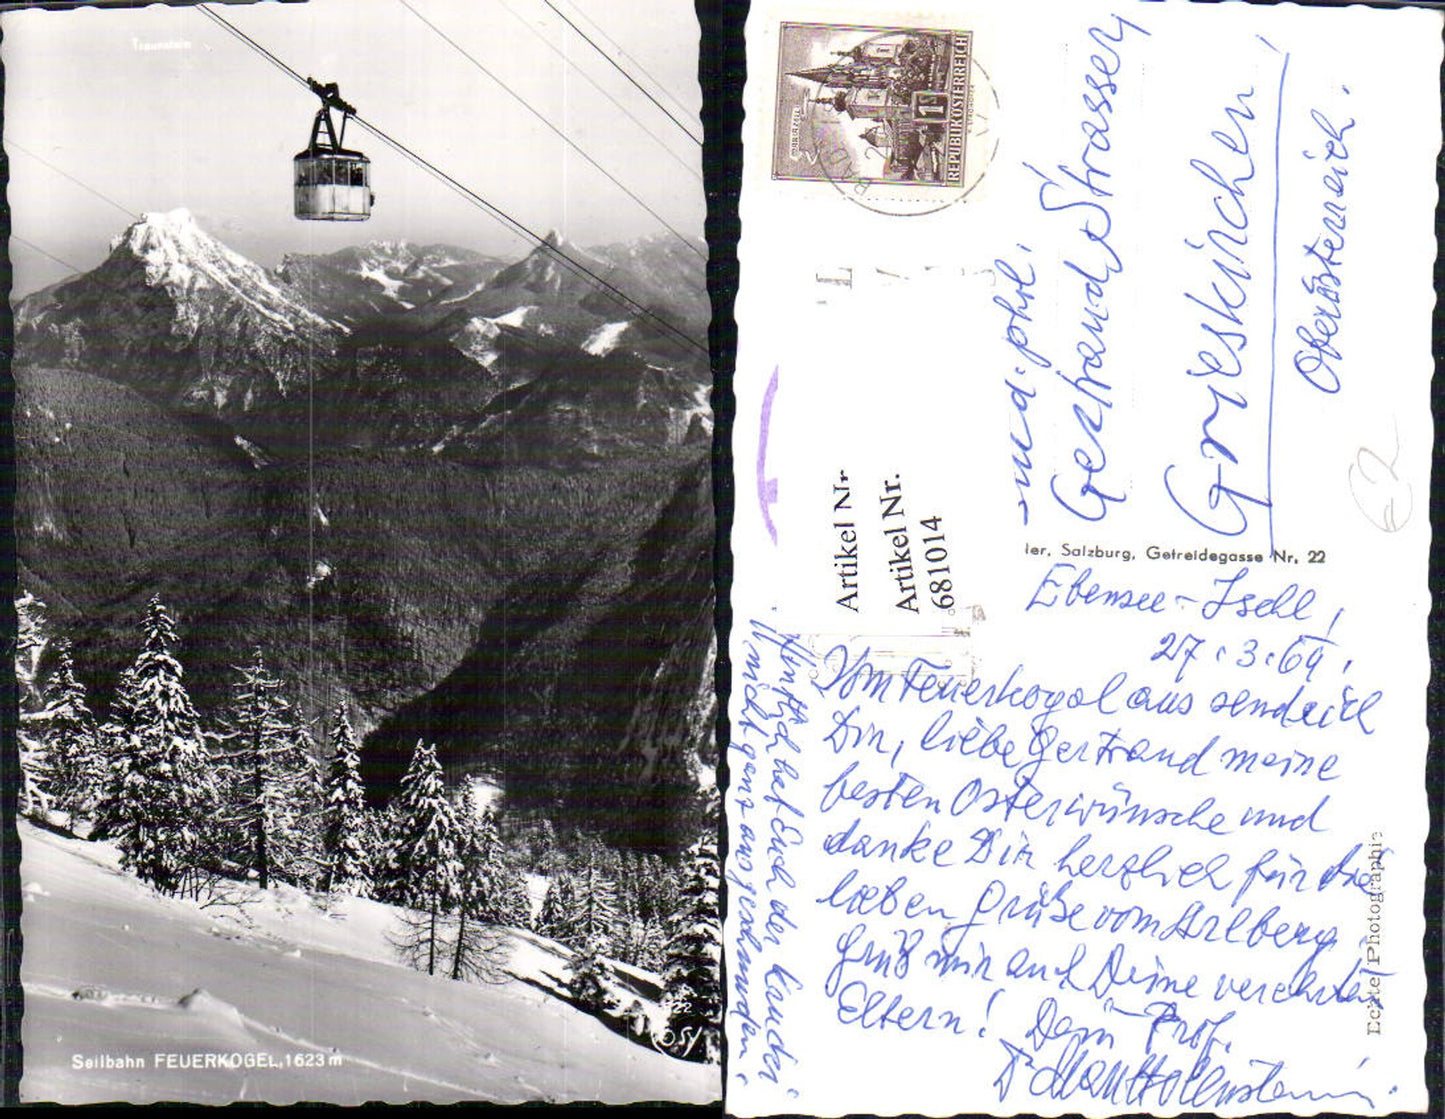 Traunstein
Seilbahn FEUERKOGEL, 1623 m
REPUBLIK ÖSTERREICH
MARIAZELL
1 S
stud. phil.
Gertraud Strasser
Grieskirchen
Oberösterreich.
Artikel Nr
Artikel Nr.
681014
ler, Salzburg, Getreidegasse Nr. 22
Echte Photographie
62
Ebensee-Ischl,
27.3.69.
Vom Feuerkogol aus send ich
Dir, liebe Gertraud meine
besten Osterwünsche und
danke Dir herzlich für die
lieben Grüße vom Arlberg.
Grüß mir auch Deine verehrten
Eltern! Dein Prof.
Dr
hat Euch der
nicht ganz aus